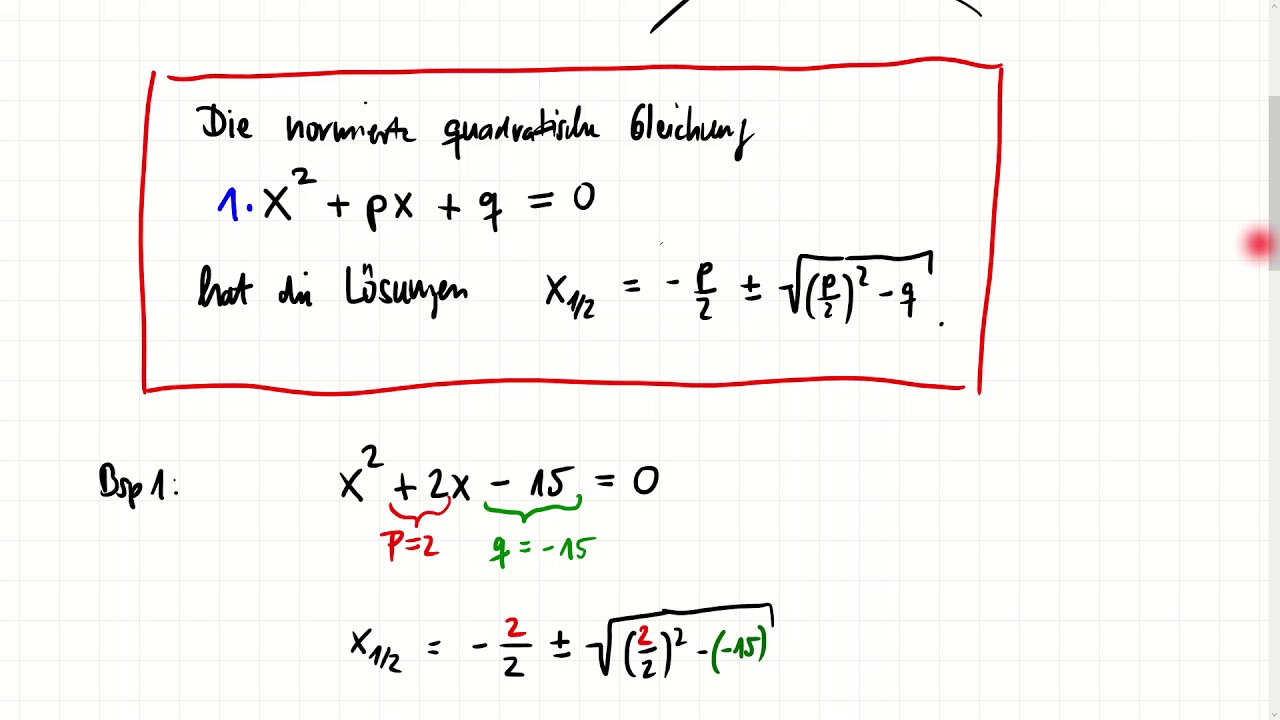 Die normierte quadratische Gleichung
1·x² + px + q = 0
hat die Lösungen x₁/₂ = - p/2 ± √((p/2)² - q) .
Bsp 1: x² + 2x - 15 = 0
p=2 q = -15
x₁/₂ = - 2/2 ± √((2/2)² - (-15))